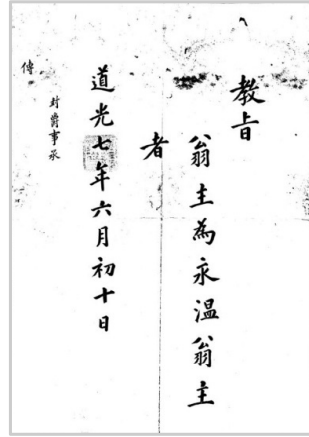 教旨
翁主為永溫翁主
者
道光七年六月初十日
封爵事承
傳